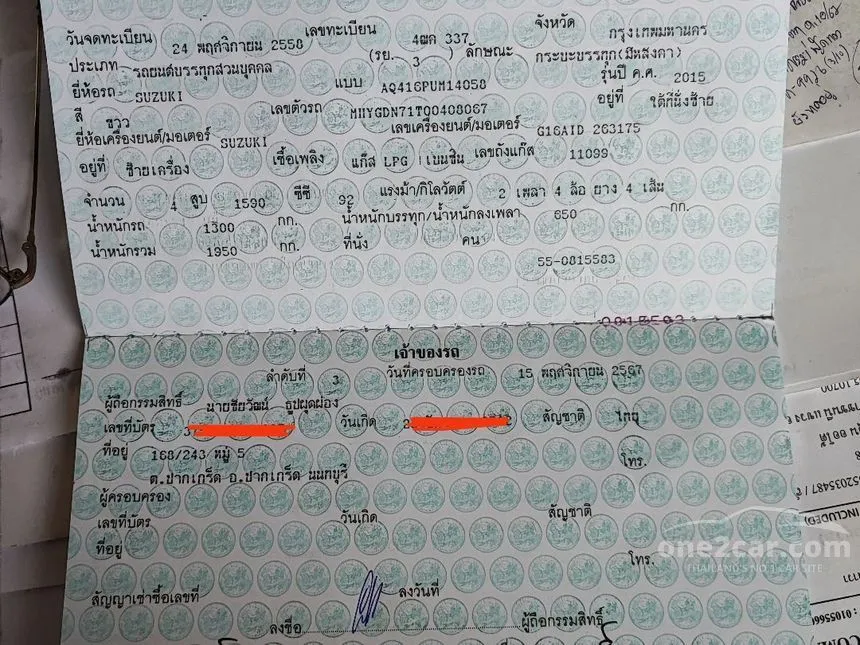 วันจดทะเบียน 24 พฤศจิกายน 2558 เลขทะเบียน 4ฒค 337 จังหวัด กรุงเทพมหานคร
ประเภท รถยนต์บรรทุกส่วนบุคคล (รย. 3 ) ลักษณะ กระบะบรรทุก(มีหลังคา)
ยี่ห้อรถ SUZUKI แบบ AQ416PUM14058 รุ่นปี ค.ศ. 2015
สี ขาว เลขตัวรถ MHYGDN71T00408067 อยู่ที่ ใต้ที่นั่งซ้าย
ยี่ห้อเครื่องยนต์/มอเตอร์ SUZUKI เลขเครื่องยนต์/มอเตอร์ G16AID 263175
อยู่ที่ ซ้ายเครื่อง เชื้อเพลิง แก๊ส LPG เบนซิน เลขถังแก๊ส 11099
จำนวน 4 สูบ 1590 ซีซี 92 แรงม้า/กิโลวัตต์ 2 เพลา 4 ล้อ ยาง 4 เส้น
น้ำหนักรถ 1300 กก. น้ำหนักบรรทุก/น้ำหนักลงเพลา 650 กก.
น้ำหนักรวม 1950 กก. ที่นั่ง คน
55-0815583
เจ้าของรถ
ลำดับที่ 3 วันที่ครอบครองรถ 15 พฤศจิกายน 2567
ผู้ถือกรรมสิทธิ์ นายชัยวัฒน์ ธูปผุดผ่อง
เลขที่บัตร 3 วันเกิด 2 สัญชาติ ไทย
ที่อยู่ 168/243 หมู่ 5 โทร.
ต.ปากเกร็ด อ.ปากเกร็ด นนทบุรี
ผู้ครอบครอง
เลขที่บัตร วันเกิด สัญชาติ
ที่อยู่ โทร.
สัญญาเช่าซื้อเลขที่ ลงวันที่
ลงชื่อ ผู้ถือกรรมสิทธิ์
one2car.com
THAILAND'S NO.1 CAR SITE
52035487
INCLUDED)